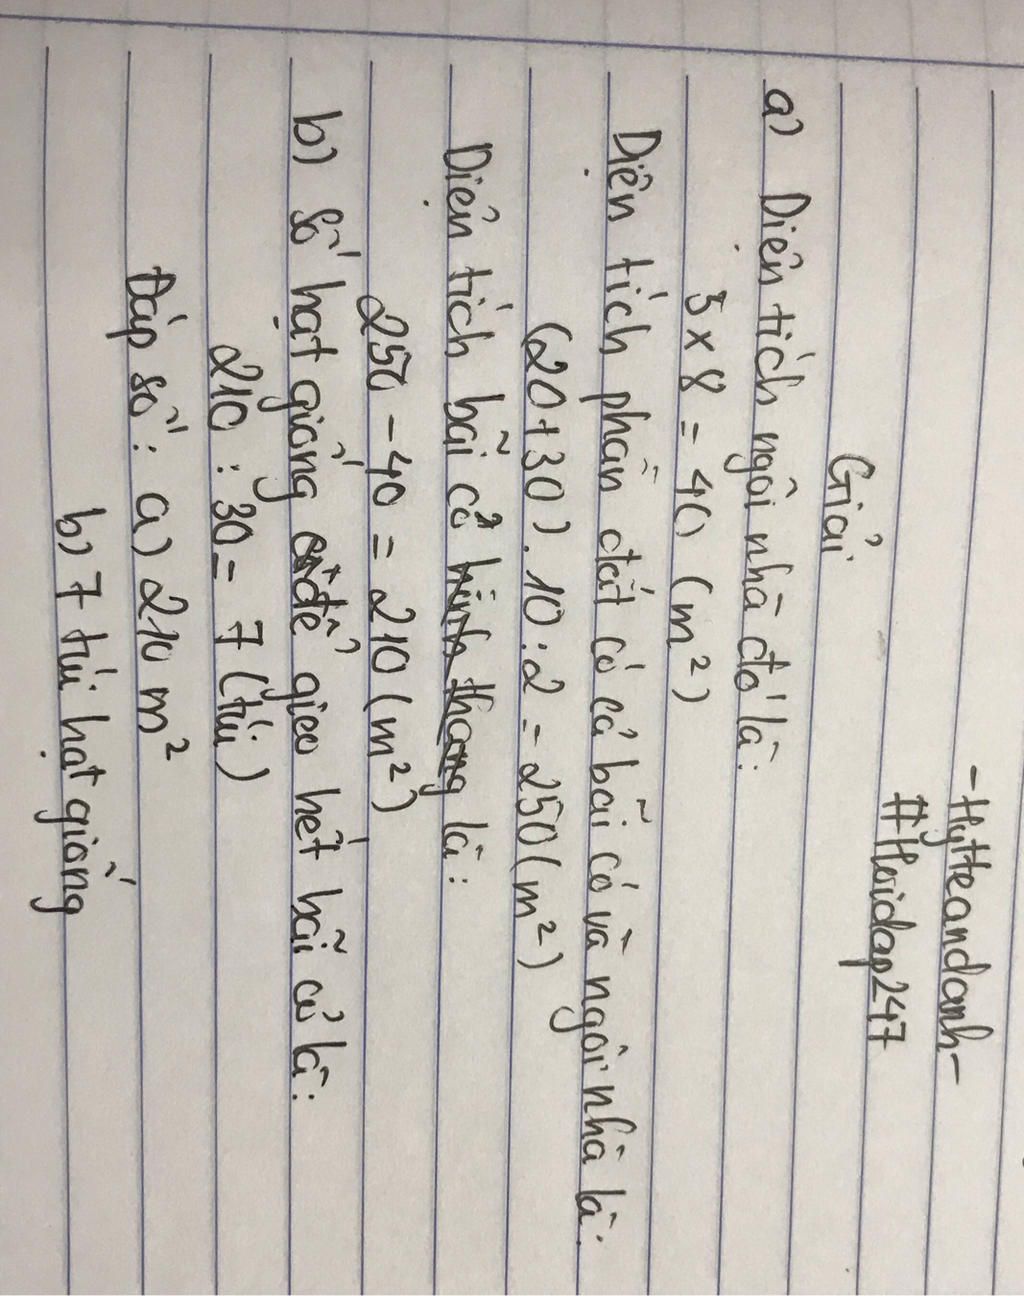 -Hytteandanh-
#Hoidap247
Giải
a) Diện tích ngôi nhà đó là:
5 x 8 = 40 (m²)
Diện tích phần đất có cả bãi cỏ và ngôi nhà là:
(20+30).10:2 = 250(m²)
Diện tích bãi cỏ hình thang là:
250 - 40 = 210 (m²)
b) số hạt giống để gieo hết bãi cỏ là:
210 : 30 = 7 (túi)
Đáp số: a) 210 m²
b) 7 túi hạt giống